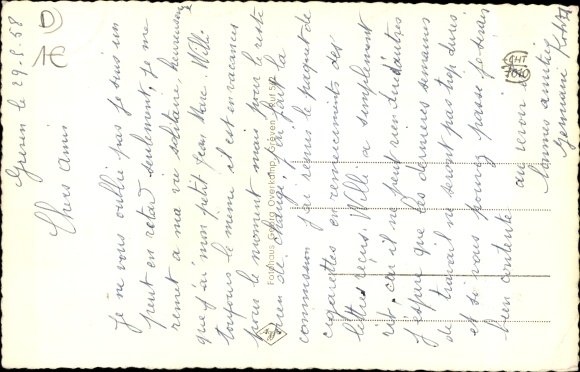 Greven le 29.8.58
Chers amis
Je ne vous oublie pas je suis un
peut en retard seulement, je me
remet a ma vie solitaire heureusement
que j'ai mon petit Jean Marc. Willi
toujours le meme il est en vacances
pour le moment mais pour le reste
rien de changé, j'ai fait la
commission j'ai remis le paquet de
cigarettes en remerciments des
lettres reçus. Willi a simplement
rit, car il ne peut rien dire d'autres
j'espère que les dernières semaines
de travail ne seront pas trop durs.
et si vous pouvez passe je serais
bien contente au revoir
Bonnes amitiés
Germaine
Fotohaus Georg Overkamp, Greven
ECHT
D